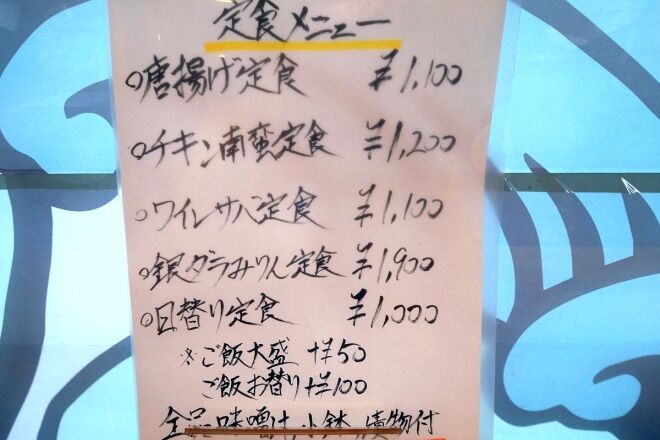 定食メニュー
○唐揚げ定食 ¥1,100
○チキン南蛮定食 ¥1,200
○ワインサバ定食 ¥1,100
○銀ダラみりん定食 ¥1,900
○日替り定食 ¥1,000
※ご飯大盛 +¥50
ご飯お替り +¥100
全品味噌汁 小鉢 漬物付